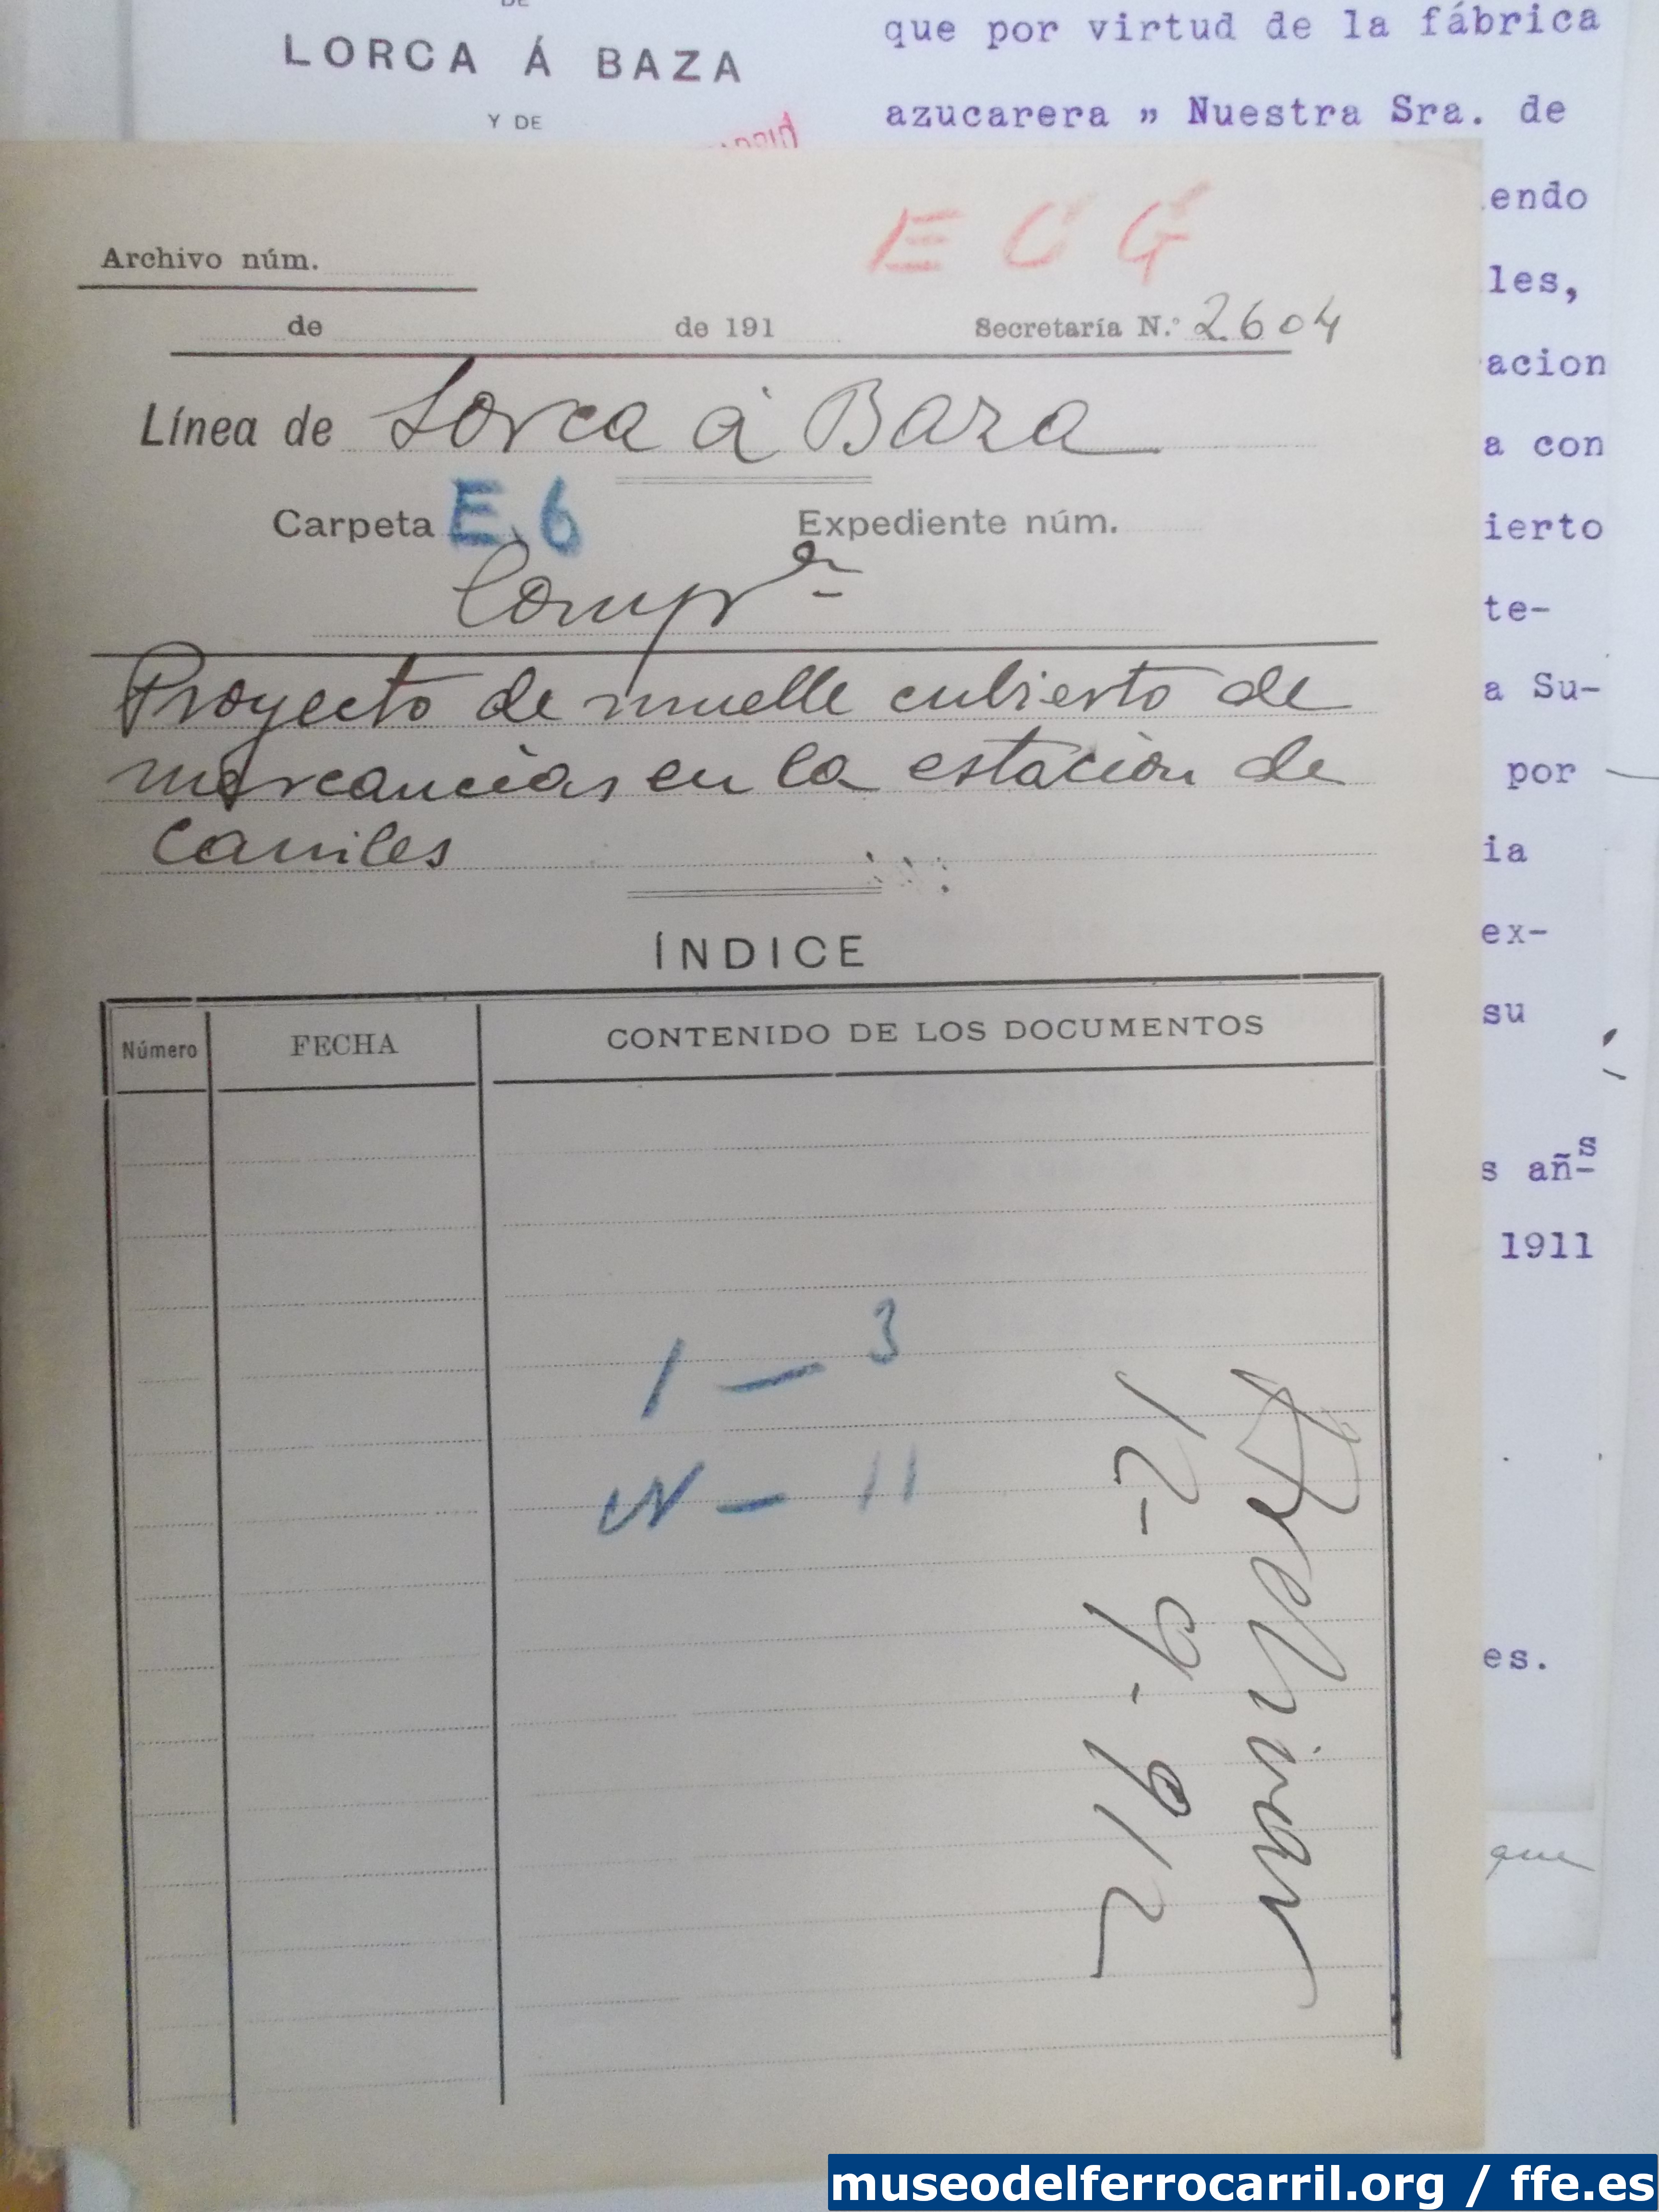 DE
LORCA Á BAZA
Y DE
que por virtud de la fábrica
azucarera " Nuestra Sra. de
endo
les,
acion
a con
ierto
te-
a Su-
por
ia
ex-
su
s añs
1911
es.
que
E C G
Archivo núm.
de de 191 Secretaría N.º 2604
Línea de Lorca á Baza
Carpeta E.6 Expediente núm.
Proyecto de muelle cubierto de
mercancias en la estación de
Caniles
ÍNDICE
Número FECHA CONTENIDO DE LOS DOCUMENTOS
1 — 3
N — 11
Archivar
12-9-912
museodelferrocarril.org / ffe.es